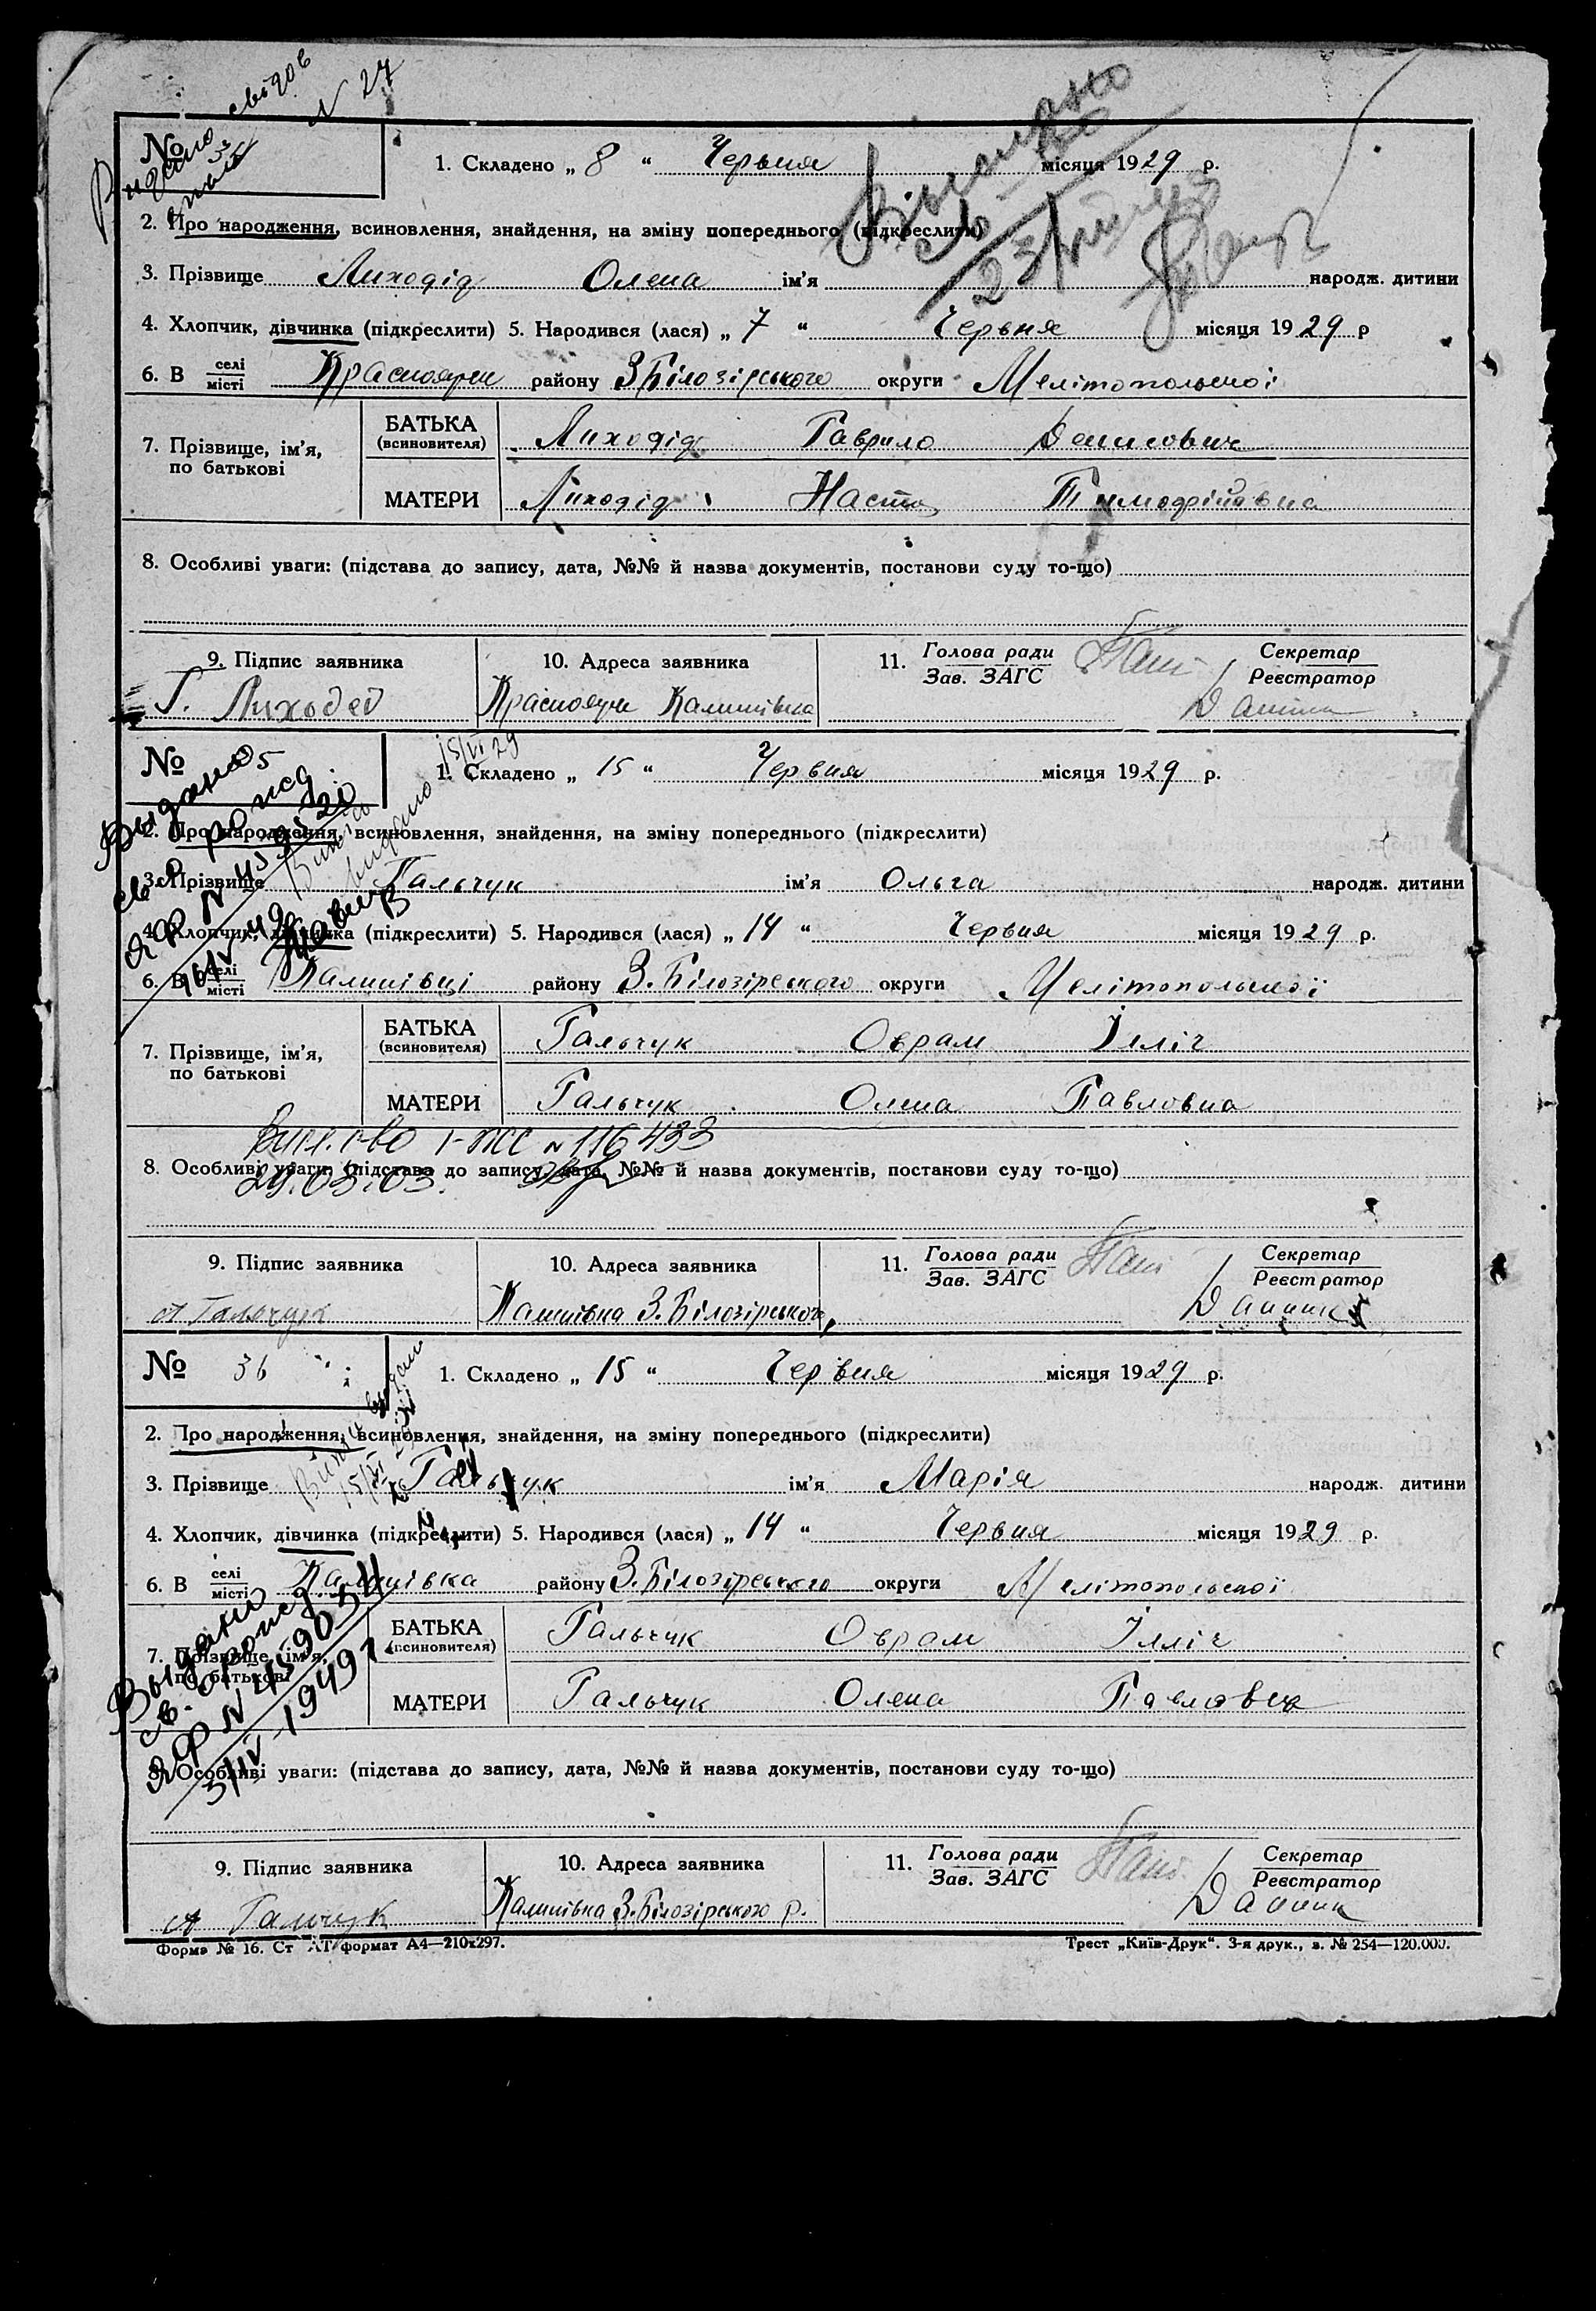 Видано свідов
N 27
№ 34
1. Складено „ 8 “ Червня місяця 1929 р.
2. Про народження, всиновлення, знайдення, на зміну попереднього (підкреслити)
3. Прізвище Лиходід Олена ім'я народж. дитини
4. Хлопчик, дівчинка (підкреслити) 5. Народився (лася) „ 7 “ Червня місяця 1929 р
6. В селі місті Красноярси району ЗБілозірського округи Мелітопольської
7. Прізвище, ім'я, по батькові
БАТЬКА (всиновителя) Лиходід Гаврило Денисович
МАТЕРИ Лиходід Настя Тимофіївна
8. Особливі уваги: (підстава до запису, дата, №№ й назва документів, постанови суду то-що)
9. Підпис заявника
Г. Лиходед
10. Адреса заявника
Красноярси Калинівка
11. Голова ради Зав. ЗАГС
Секретар Реєстратор
№ 35
15/VI 29
1. Складено „ 15 “ Червня місяця 1929 р.
Выдано
св о рожд.
2. Про народження, всиновлення, знайдення, на зміну попереднього (підкреслити)
3. Прізвище Гальчук ім'я Ольга народж. дитини
4. Хлопчик, дівчинка (підкреслити) 5. Народився (лася) „ 14 “ Червня місяця 1929 р.
6. В селі місті Калинівці району З. Білозірського округи Мелітопольської
7. Прізвище, ім'я, по батькові
БАТЬКА (всиновителя) Гальчук Оврам Ілліч
МАТЕРИ Гальчук Олена Павловна
І-ЖС N 116433
8. Особливі уваги: (підстава до запису, дата, №№ й назва документів, постанови суду то-що)
29.03.03.
9. Підпис заявника
А Гальчук
10. Адреса заявника
Калинівка З. Білозірського
11. Голова ради Зав. ЗАГС
Секретар Реєстратор
№ 36
1. Складено „ 15 “ Червня місяця 1929 р.
2. Про народження, всиновлення, знайдення, на зміну попереднього (підкреслити)
3. Прізвище Гальчук ім'я Марія народж. дитини
4. Хлопчик, дівчинка (підкреслити) 5. Народився (лася) „ 14 “ Червня місяця 1929 р.
6. В селі місті Калинівка району З. Білозірського округи Мелітопольської
7. Прізвище, ім'я, по батькові
БАТЬКА (всиновителя) Гальчук Оврам Ілліч
МАТЕРИ Гальчук Олена Павловна
Выдано
св. о рожд.
ЯФ N 459054
3/IV-1949г.
8. Особливі уваги: (підстава до запису, дата, №№ й назва документів, постанови суду то-що)
9. Підпис заявника
А Гальчук
10. Адреса заявника
Калинівка З. Білозірського р.
11. Голова ради Зав. ЗАГС
Секретар Реєстратор
Форма № 16. Ст АТ формат А4—210х297.
Трест „Київ-Друк“. 3-я друк., з. № 254—120.000.